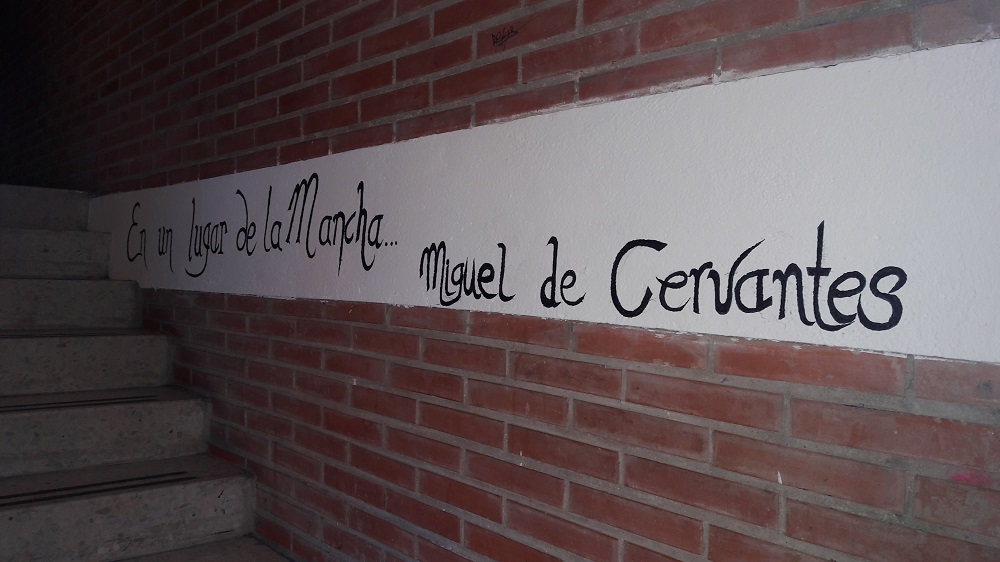 En un lugar de la Mancha...
Miguel de Cervantes